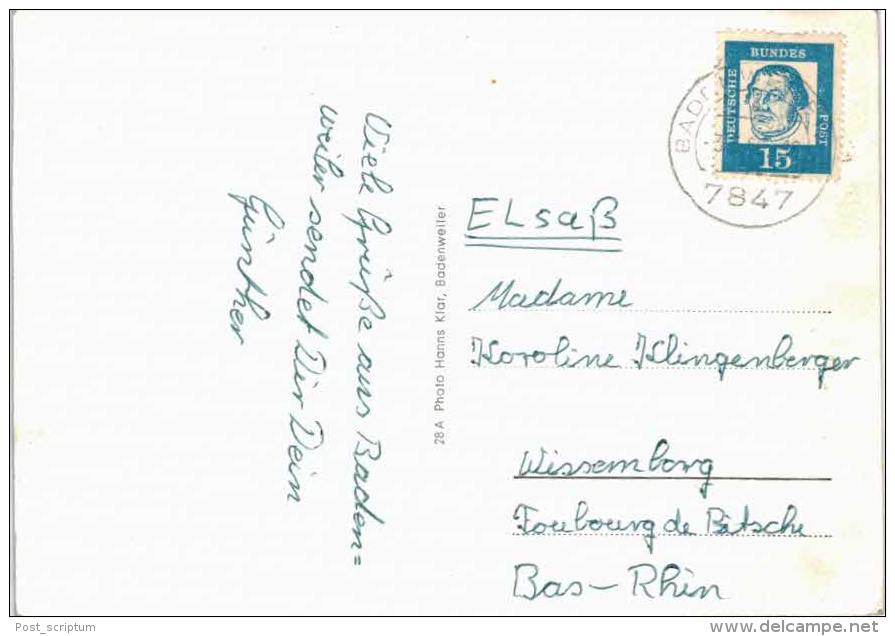 Viele Grüße aus Baden=
weiler sendet Dir Dein
Günther
28 A Photo Hanns Klar, Badenweiler
DEUTSCHE
BUNDES
POST
15
7847
ELsaß
Madame
Karoline Klingenberger
Wissemborg
Foubourg de Bitsche
Bas-Rhin
Post_scriptum
www.delcampe.com